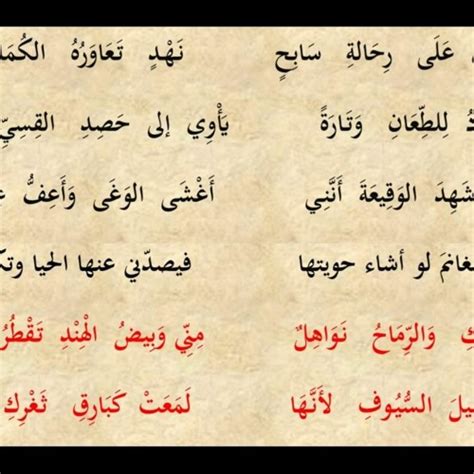 عَلَى رِحَالةِ سَابِحٍ نَهْدٍ تَعَاوَرُهُ الكُمَا
لِلطِّعَانِ وَتَارَةً يَأْوِي إلى حَصِدِ القِسِيِّ
شَهِدَ الوَقِيعَةَ أَنَّنِي أَغْشَى الوَغَى وَأَعِفُّ
لو أشاء حويتها فيصدّني عنها الحيا
وَالرِّمَاحُ نَوَاهِلٌ مِنِّي وَبِيضُ الْهِنْدِ تَقْطُرُ
السُّيُوفِ لأَنَّهَا لَمَعَتْ كَبَارِقِ ثَغْرِكِ